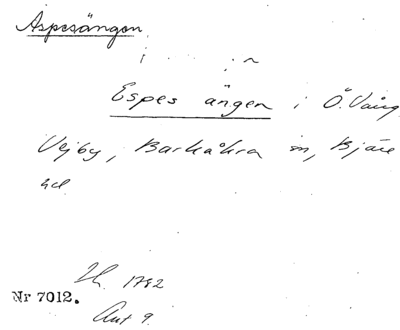 Aspesängen
Espes ängen i Ö. Vång
Vejby, Barkåkra sn, Bjäre
hd
H. 1792
Nr 7012.
Akt 9.